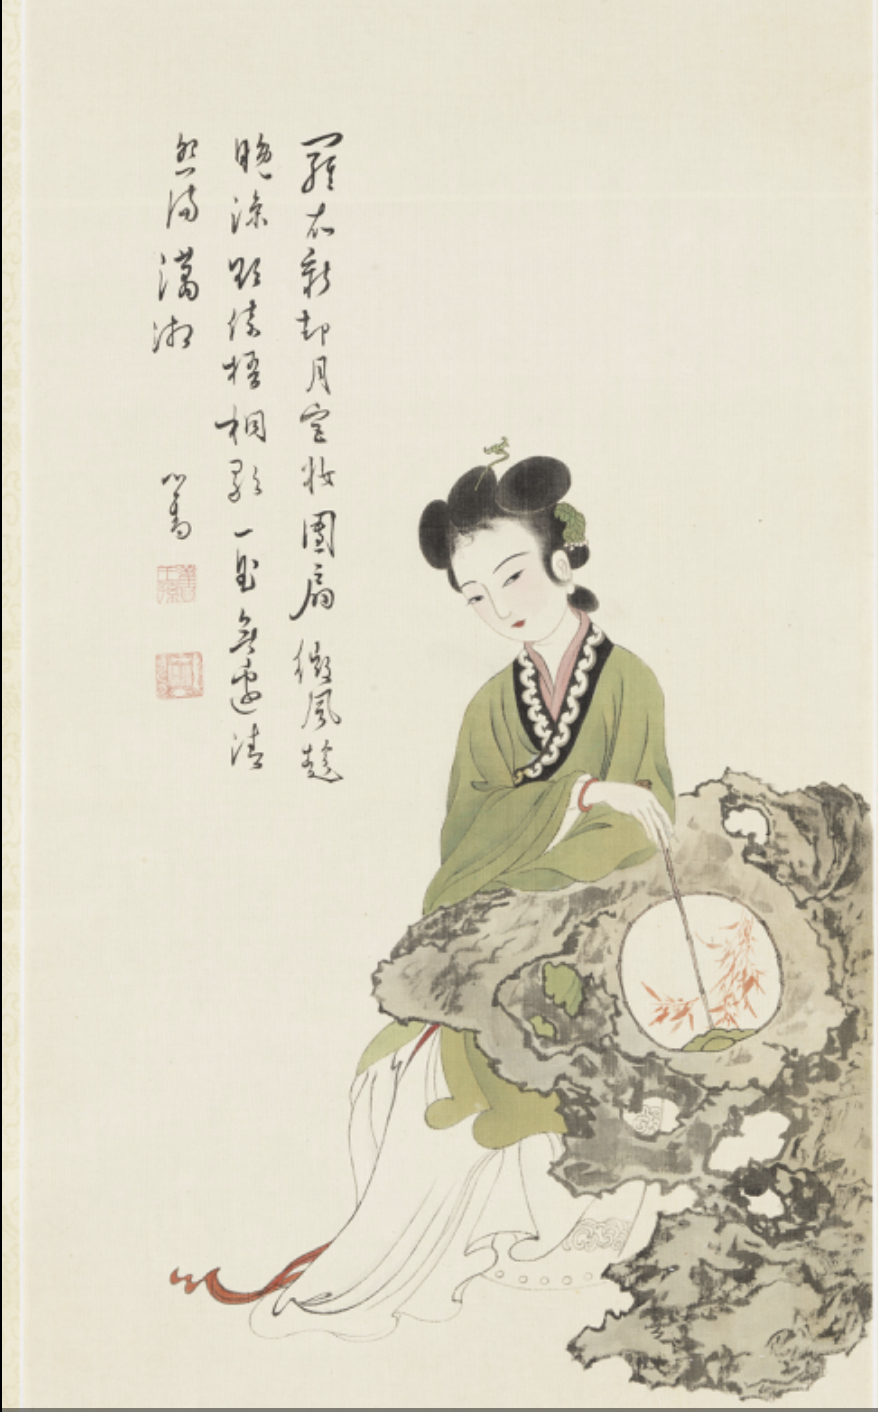 羅衣新卸月宮妝團扇微風趁
晚涼倚梧桐影一無邊清
怨滿瀟湘
心畬
舊王孫